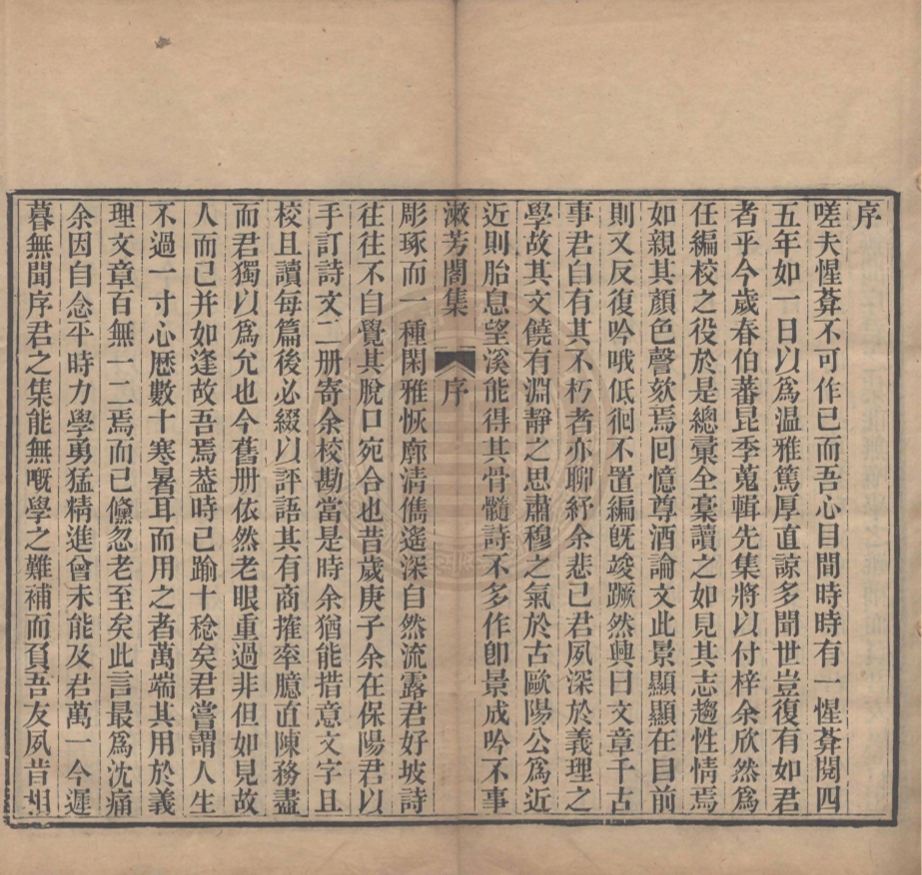 序
嗟夫惺葊不可作已而吾心目間時時有一惺葊閱四
五年如一日以爲温雅篤厚直諒多聞世豈復有如君
者乎今歲春伯蕃昆季蒐輯先集將以付梓余欣然爲
任編校之役於是總彙全稾讀之如見其志趨性情焉
如親其顏色謦欬焉囘憶尊酒論文此景顯顯在目前
則又反復吟哦低徊不置編旣竣蹶然興曰文章千古
事君自有其不朽者亦聊紓余悲已君夙深於義理之
學故其文饒有淵靜之思肅穆之氣於古歐陽公爲近
近則胎息望溪能得其骨髓詩不多作卽景成吟不事
漱芳閣集 序
彫琢而一種閑雅恢廓清儁遙深自然流露君好坡詩
往往不自覺其脫口宛合也昔歲庚子余在保陽君以
手訂詩文二册寄余校勘當是時余猶能措意文字且
校且讀每篇後必綴以評語其有商搉率臆直陳務盡
而君獨以爲允也今舊册依然老眼重過非但如見故
人而已并如逢故吾焉葢時已踰十稔矣君嘗謂人生
不過一寸心歴數十寒暑耳而用之者萬端其用於義
理文章百無一二焉而已儵忽老至矣此言最爲沈痛
余因自念平時力學勇猛精進曾未能及君萬一今遲
暮無聞序君之集能無嘅學之難補而負吾友夙昔相